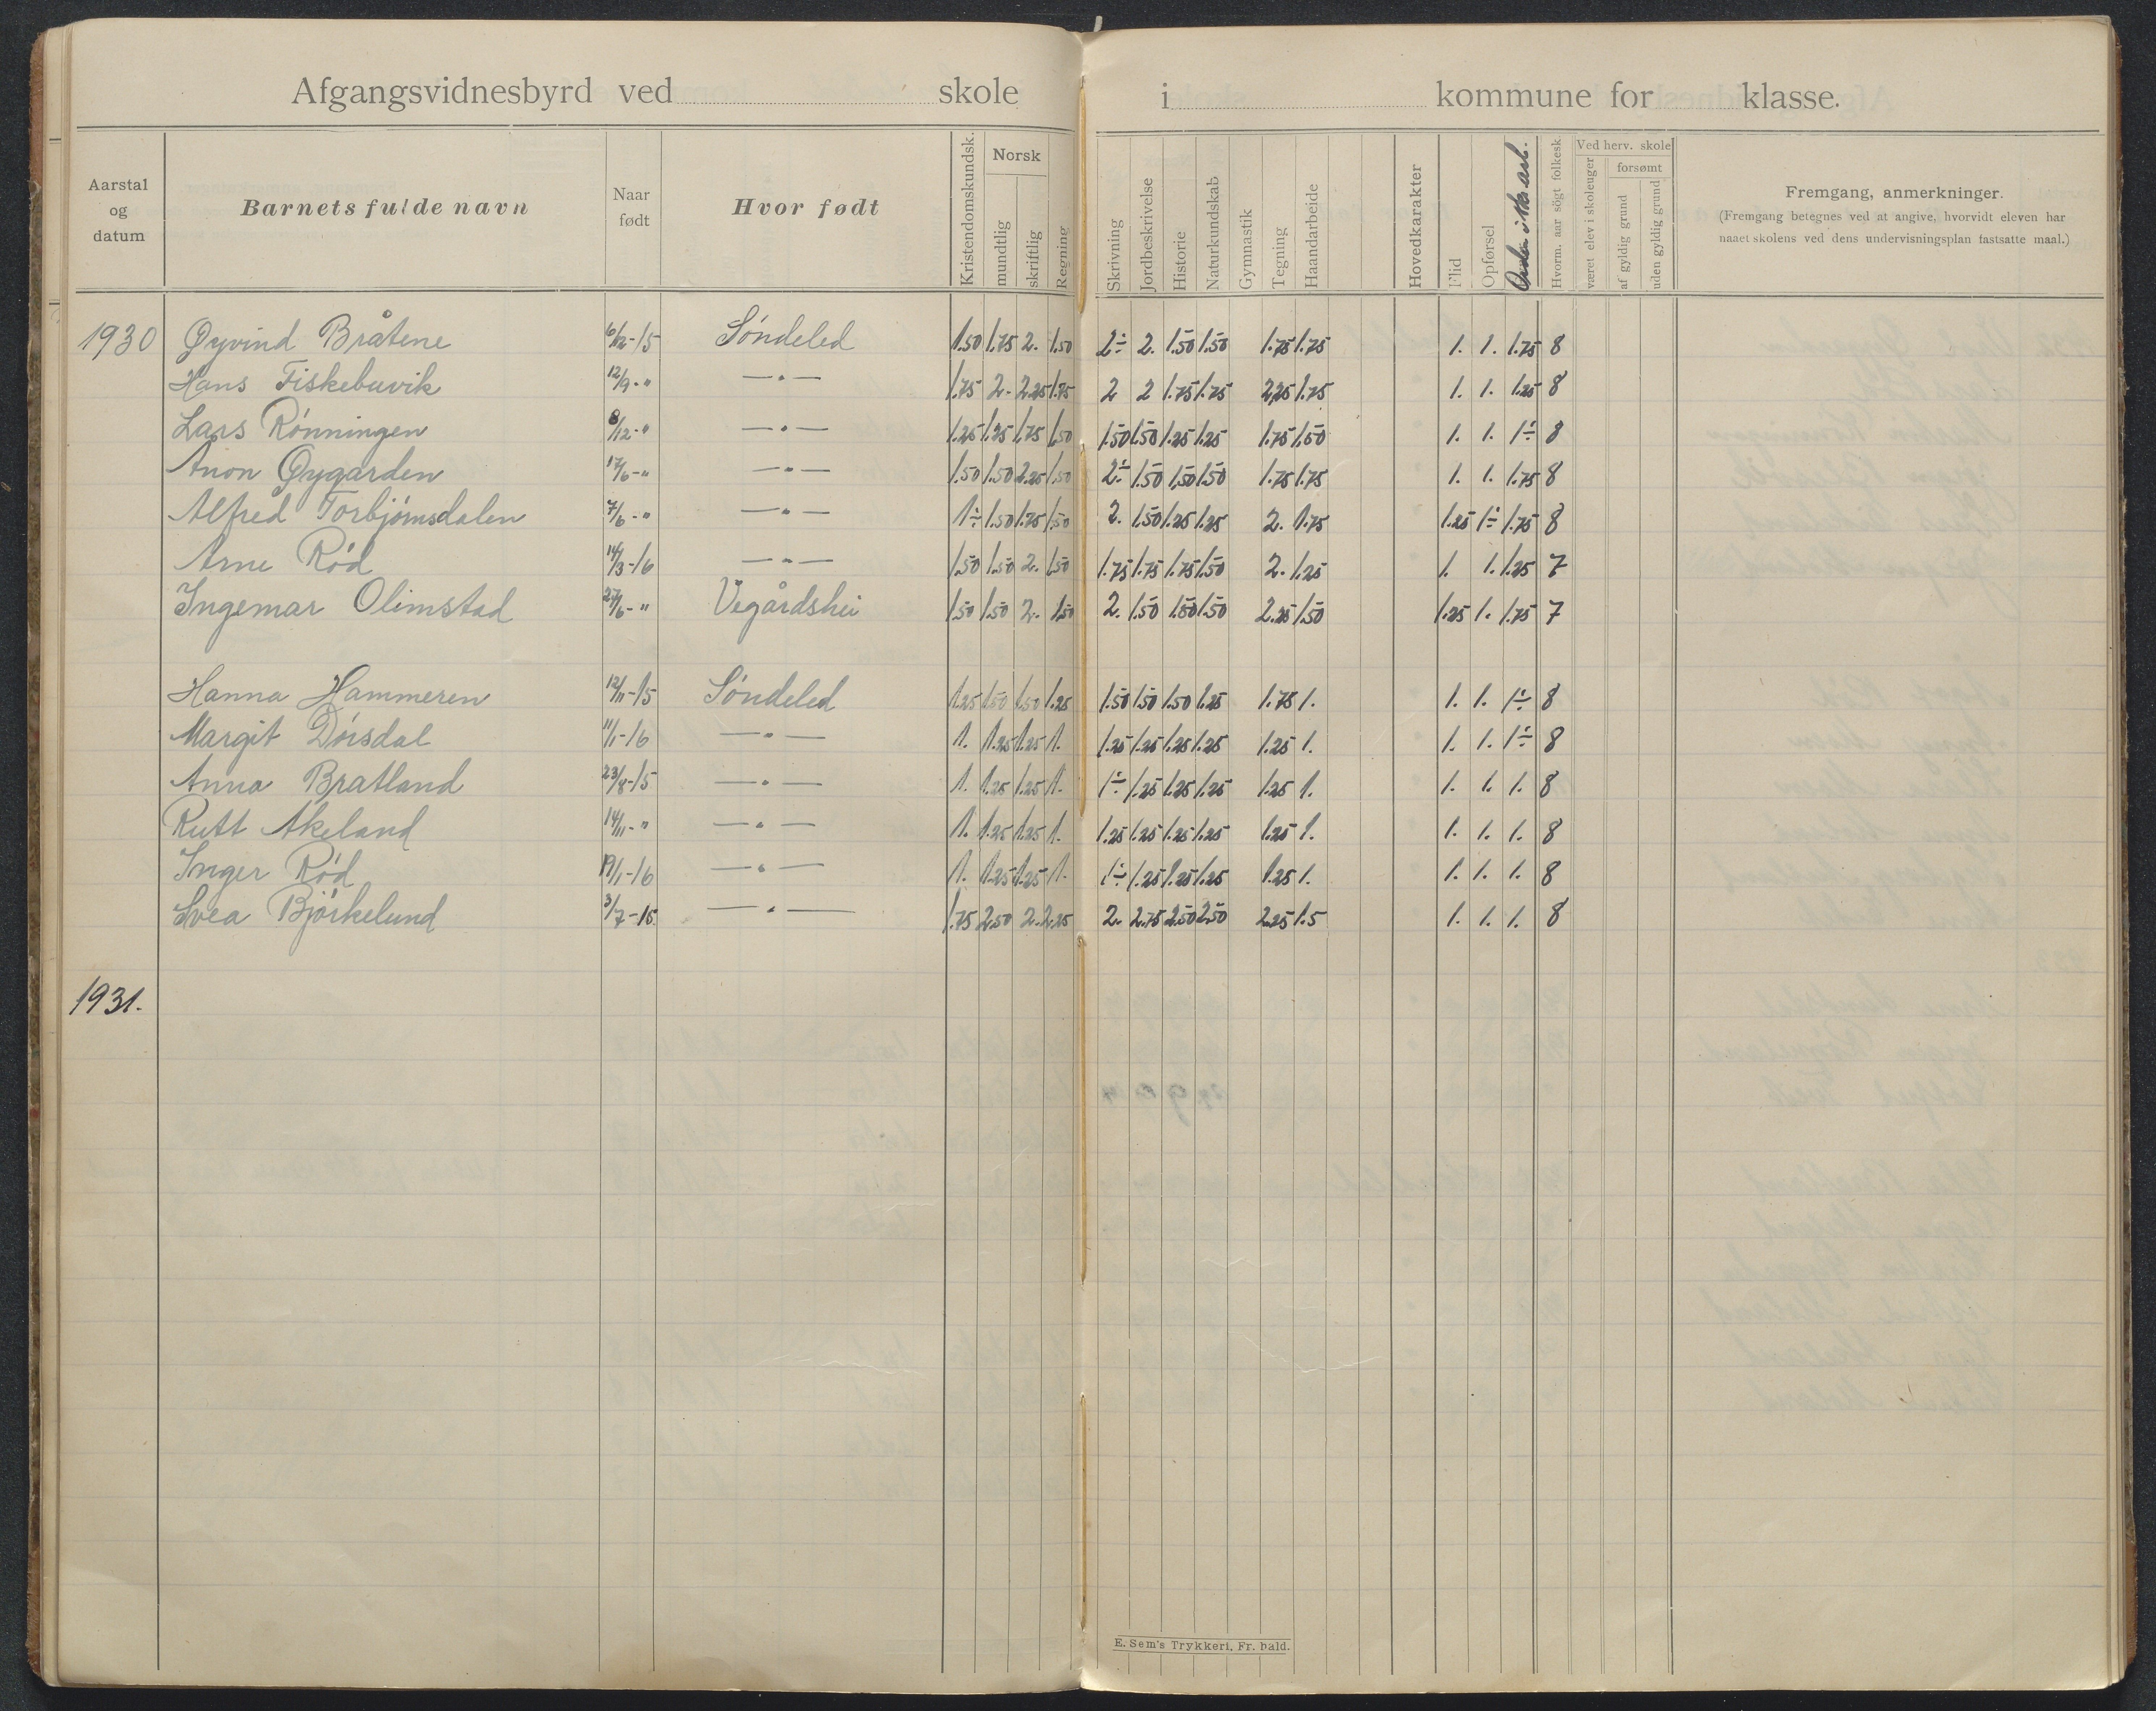 Afgangsvidnesbyrd ved skole i kommune for klasse.
Aarstal og datum
Barnets fulde navn
Naar født
Hvor født
Kristendomskundsk.
Norsk
mundtlig
skriftlig
Regning
Skrivning
Jordbeskrivelse
Historie
Naturkundskab
Gymnastik
Tegning
Haandarbeide
Hovedkarakter
Flid
Opførsel
Orden i skr. arb.
Hvorm. aar sögt folkesk.
Ved herv. skole
været elev i skoleuger
forsømt
af gyldig grund
uden gyldig grund
Fremgang, anmerkninger.
(Fremgang betegnes ved at angive, hvorvidt eleven har
naaet skolens ved dens undervisningsplan fastsatte maal.)
1930 Øyvind Bråtene 6/12-15 Søndeled 1.50 1.75 2. 1.50 2÷ 2. 1.50 1.50 1.75 1.75 1. 1. 1.75 8
Hans Fiskebuvik 12/9-" —"— 1.75 2- 2.25 1.75 2 2 1.75 1.75 2.25 1.75 1. 1. 1.25 8
Lars Rønningen 8/12-" —"— 1.25 1.25 1.75 1.50 1.50 1.50 1.25 1.25 1.75 1.50 1. 1. 1÷ 8
Anon Øygarden 17/6-" —"— 1.50 1.50 2.25 1.50 2÷ 1.50 1.50 1.50 1.75 1.75 1. 1. 1.75 8
Alfred Torbjørnsdalen 7/6-" —"— 1÷ 1.50 1.75 1.50 2. 1.50 1.25 1.25 2. 1.75 1.25 1÷ 1.75 8
Arne Rød 14/3-16 —"— 1.50 1.50 2. 1.50 1.75 1.75 1.75 1.50 2. 1.25 1. 1. 1.25 7
Ingemar Olimstad 27/6-" Vegårdshei 1.50 1.50 2. 1.50 2. 1.50 1.50 1.50 2.25 1.50 1.25 1. 1.75 7
Hanna Hammeren 12/11-15 Søndeled 1.25 1.50 1.50 1.25 1.50 1.50 1.50 1.25 1.75 1. 1. 1. 1÷ 8
Margit Dørsdal 11/1-16 —"— 1. 1.25 1.25 1. 1.25 1.25 1.25 1.25 1.25 1. 1. 1. 1÷ 8
Anna Bratland 23/8-15 —"— 1. 1.25 1.25 1. 1÷ 1.25 1.25 1.25 1.25 1. 1. 1. 1. 8
Rutt Akeland 14/11-" —"— 1. 1.25 1.25 1. 1.25 1.25 1.25 1.25 1.25 1. 1. 1. 1. 8
Inger Rød 19/1-16 —"— 1. 1.25 1.25 1. 1÷ 1.25 1.25 1.25 1.25 1. 1. 1. 1. 8
Svea Bjørkelund 3/7-15 —"— 1.75 2.50 2. 2.25 2. 2.75 2.50 2.50 2.25 1.5 1. 1. 1. 8
1931.
E. Sem's Trykkeri, Fr. hald.